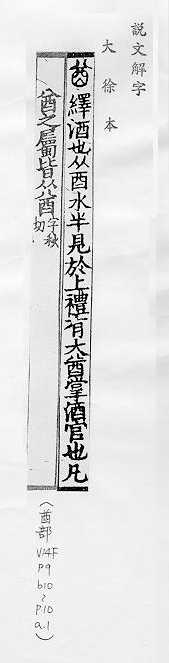 說文解字
大徐本
酋繹酒也从酉水半見於上禮有大酋掌酒官也凡
酋之屬皆从酋字秋切
(酋部V14F P9 b10~P10 a.1)